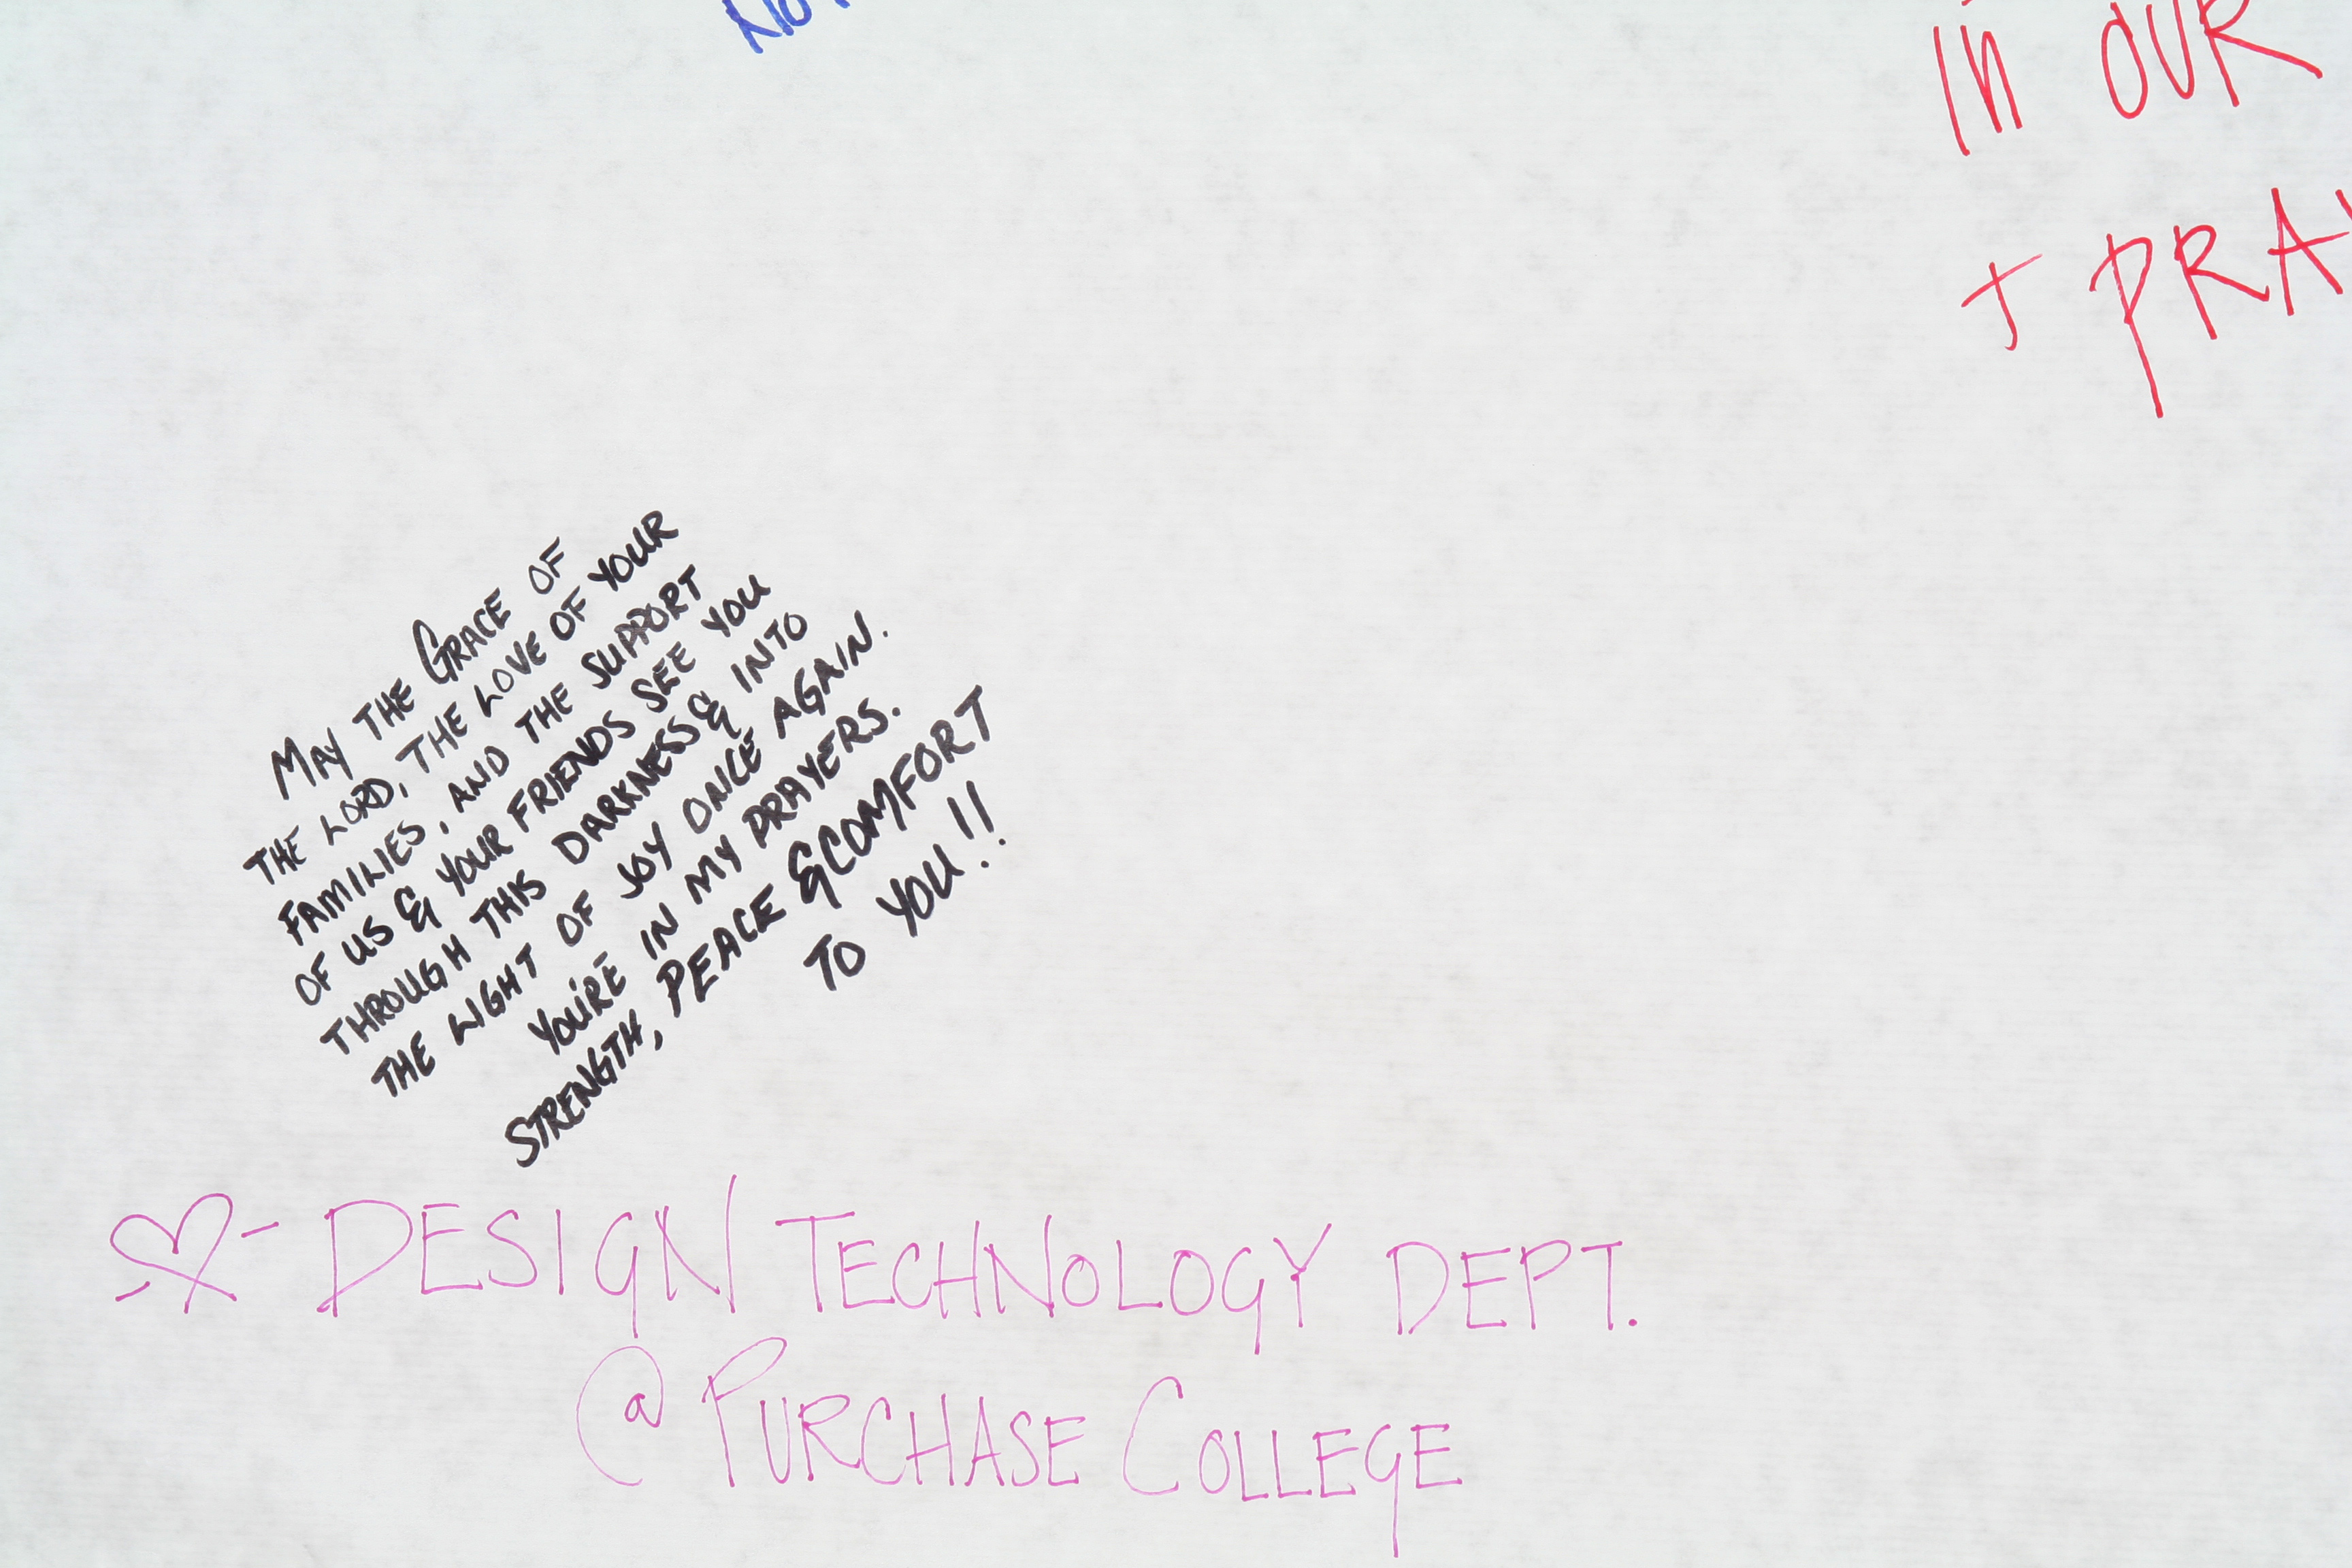 IN OUR
+ PRAY
MAY THE GRACE OF
THE LORD, THE LOVE OF YOUR
FAMILIES, AND THE SUPPORT
OF US & YOUR FRIENDS SEE YOU
THROUGH THIS DARKNESS & INTO
THE LIGHT OF JOY ONCE AGAIN.
YOU'RE IN MY PRAYERS.
STRENGTH, PEACE & COMFORT
TO YOU!!
♡- DESIGN TECHNOLOGY DEPT.
@ PURCHASE COLLEGE